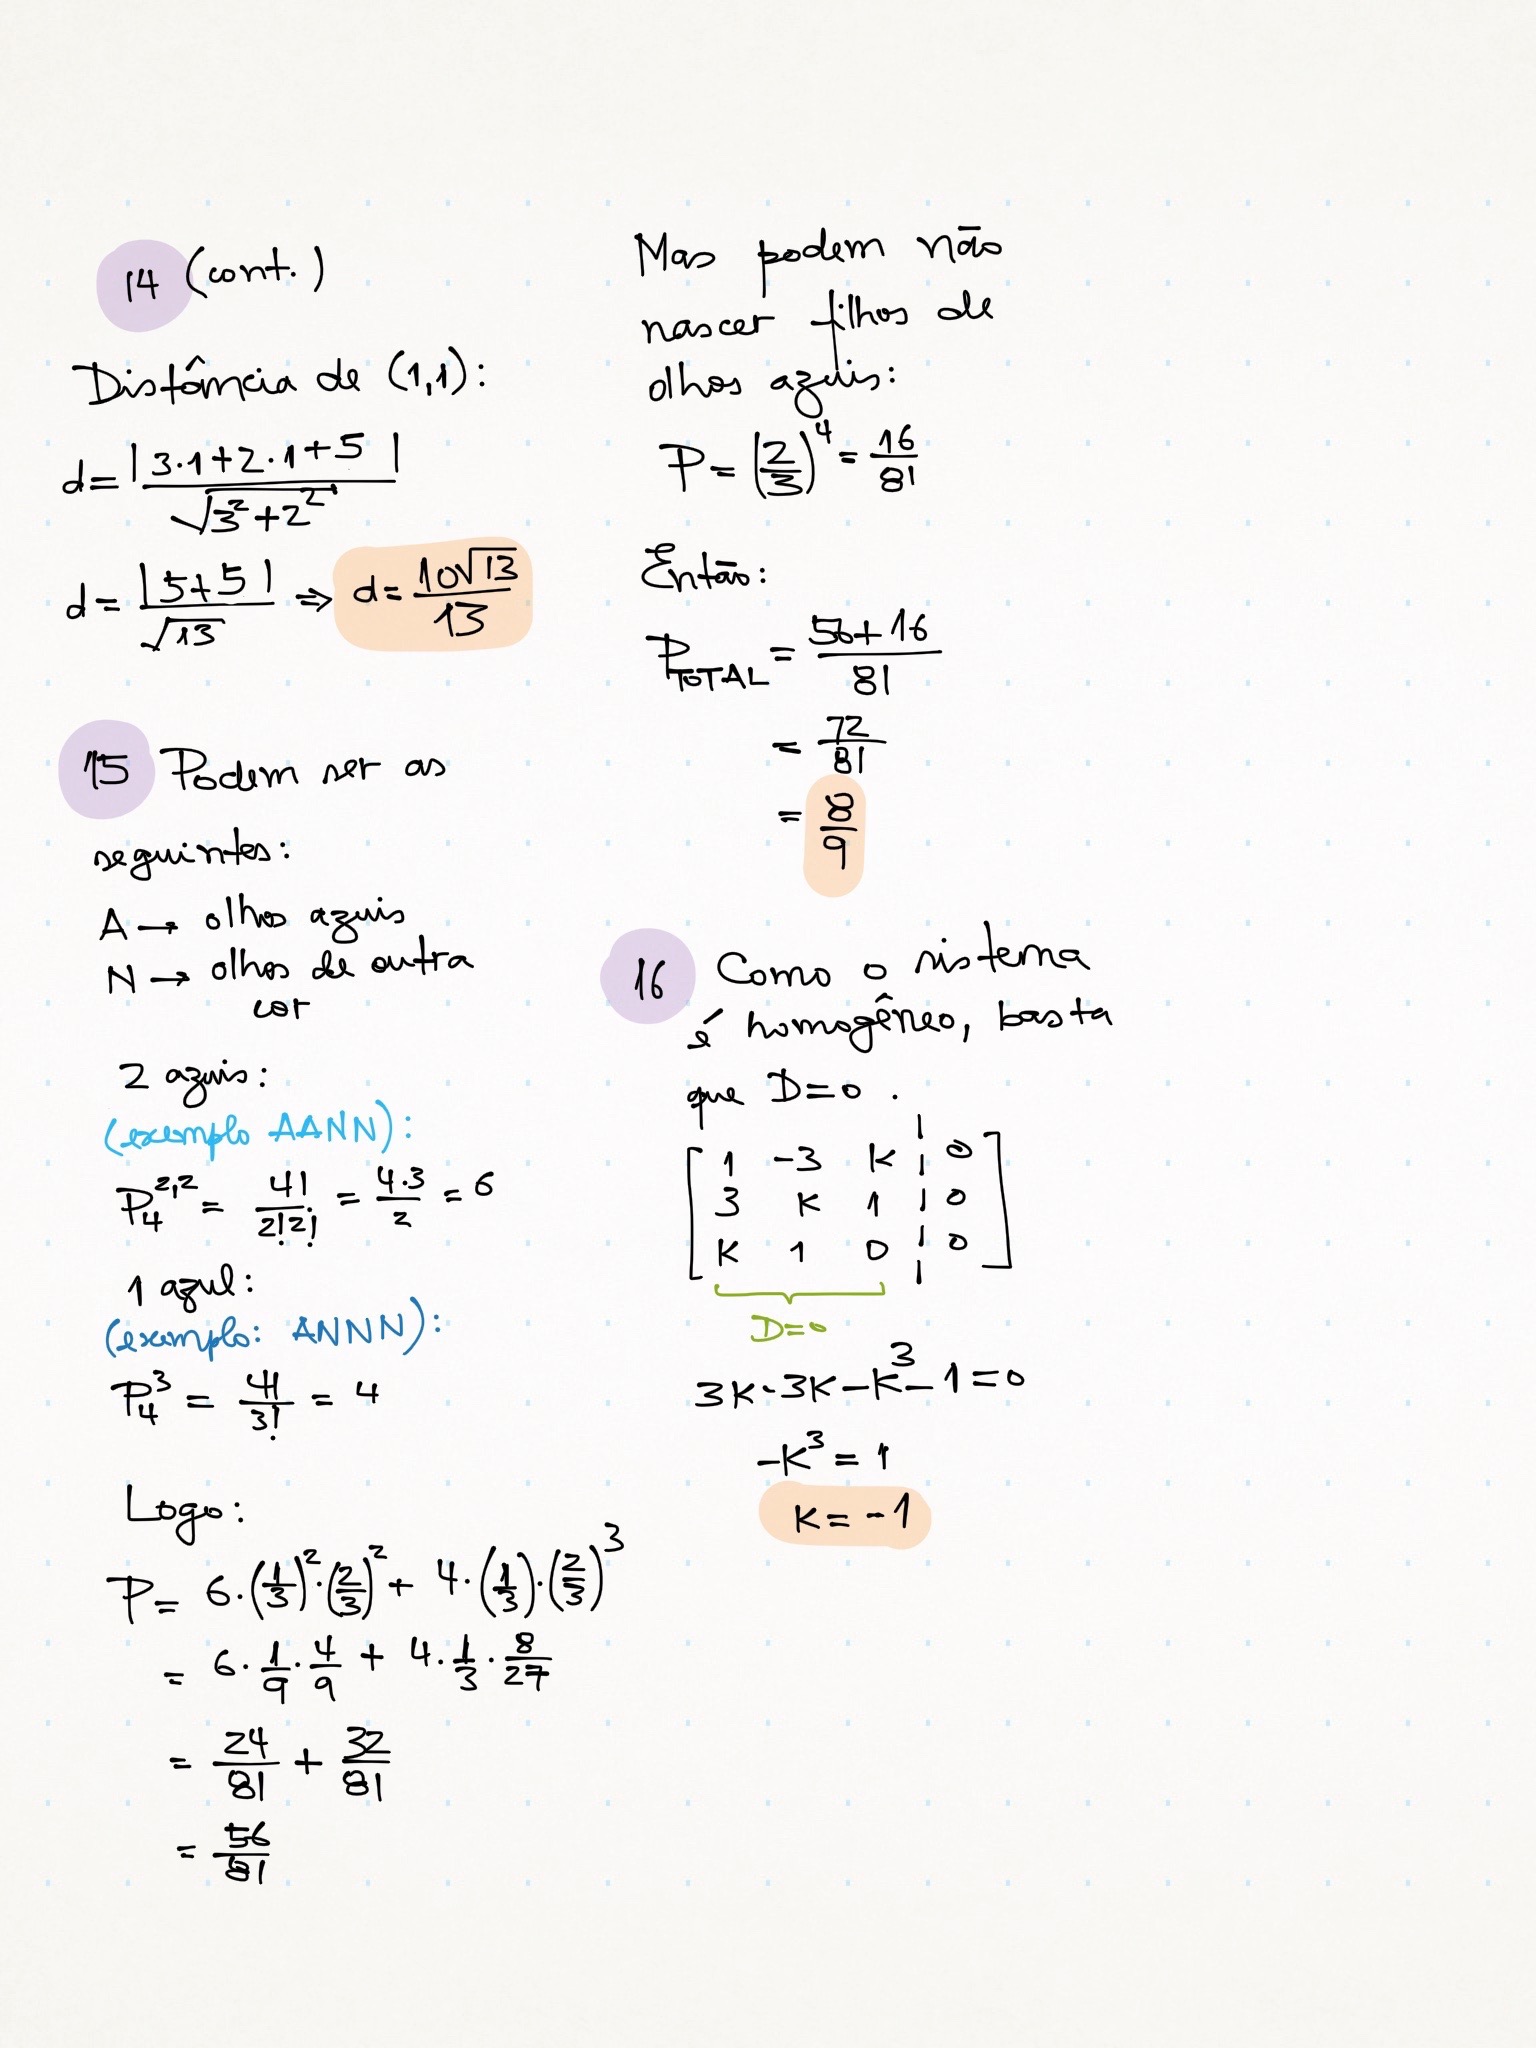 14 (cont.)
Distância de (1,1):
d = |3·1+2·1+5| / √(3²+2²)
d = |5+5| / √13 ⇒ d = 10√13 / 13
15 Podem ser as
seguintes:
A → olhos azuis
N → olhos de outra
cor
2 azuis:
(exemplo AANN):
P₄^2,2 = 4! / 2!2! = 4·3 / 2 = 6
1 azul:
(exemplo: ANNN):
P₄³ = 4! / 3! = 4
Logo:
P = 6·(1/3)²·(2/3)² + 4·(1/3)·(2/3)³
= 6·1/9·4/9 + 4·1/3·8/27
= 24/81 + 32/81
= 56/81
Mas podem não
nascer filhos de
olhos azuis:
P = (2/3)⁴ = 16/81
Então:
P_TOTAL = 56+16 / 81
= 72/81
= 8/9
16 Como o sistema
é homogêneo, basta
que D=0.
1 -3 K | 0
3 K 1 | 0
K 1 0 | 0
D=0
3K-3K-K³-1=0
-K³ = 1
K = -1